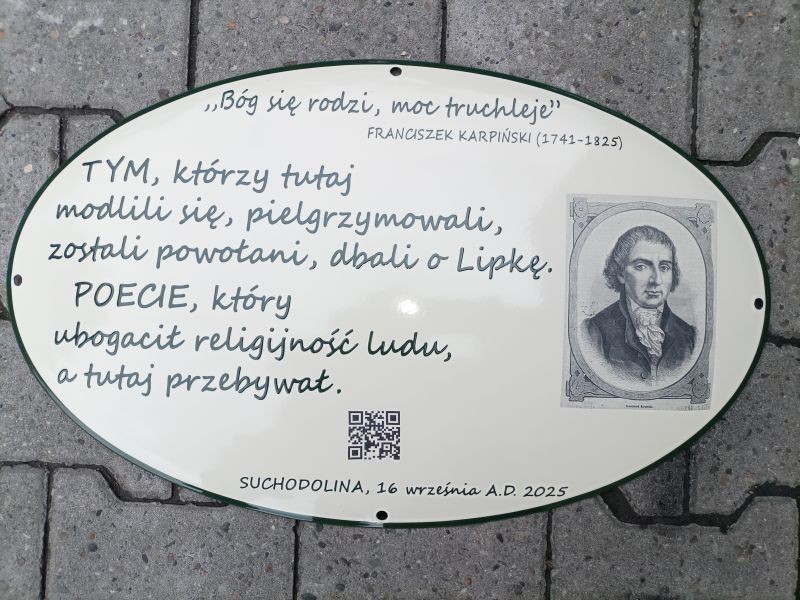 „Bóg się rodzi, moc truchleje"
FRANCISZEK KARPIŃSKI (1741-1825)
TYM, którzy tutaj
modlili się, pielgrzymowali,
zostali powołani, dbali o Lipkę.
POECIE, który
ubogacił religijność ludu,
a tutaj przebywał.
SUCHODOLINA, 16 września A.D. 2025